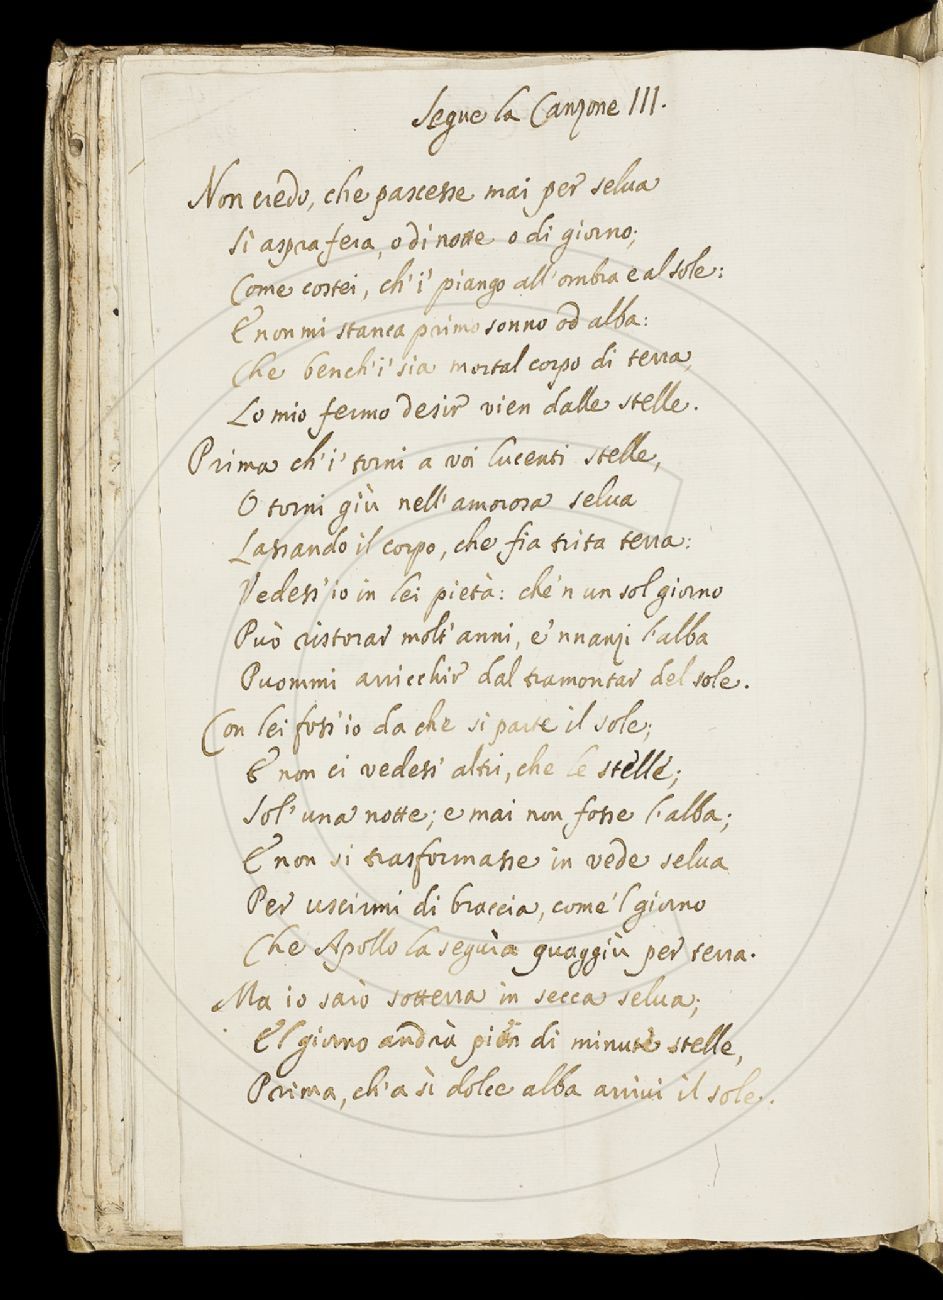 Segue la Canzone III.
Non credo, che pascesse mai per selva
Sì aspra fera, o di notte o di giorno;
Come costei, ch'i' piango all'ombra e al sole:
E non mi stanca primo sonno od alba:
Che bench'i' sia mortal corpo di terra,
Lo mio fermo desir vien dalle stelle.
Prima ch'i' torni a voi lucenti stelle,
O torni giù nell'amorosa selva
Lassando il corpo, che fia trita terra:
Vedess'io in lei pietà: che'n un sol giorno
Può ristorar molt'anni, e'nnanzi l'alba
Puommi arricchir dal tramontar del sole.
Con lei foss'io da che si parte il sole;
E non ci vedess'altri, che le stelle;
Sol'una notte; e mai non fosse l'alba;
E non si trasformasse in vede selva
Per uscirmi di braccia, come'l giorno
Che Apollo la seguìa quaggiù per terra.
Ma io sarò sotterra in secca selva;
E'l giorno andrà pien di minute stelle,
Prima, ch'a sì dolce alba arrivi il sole.